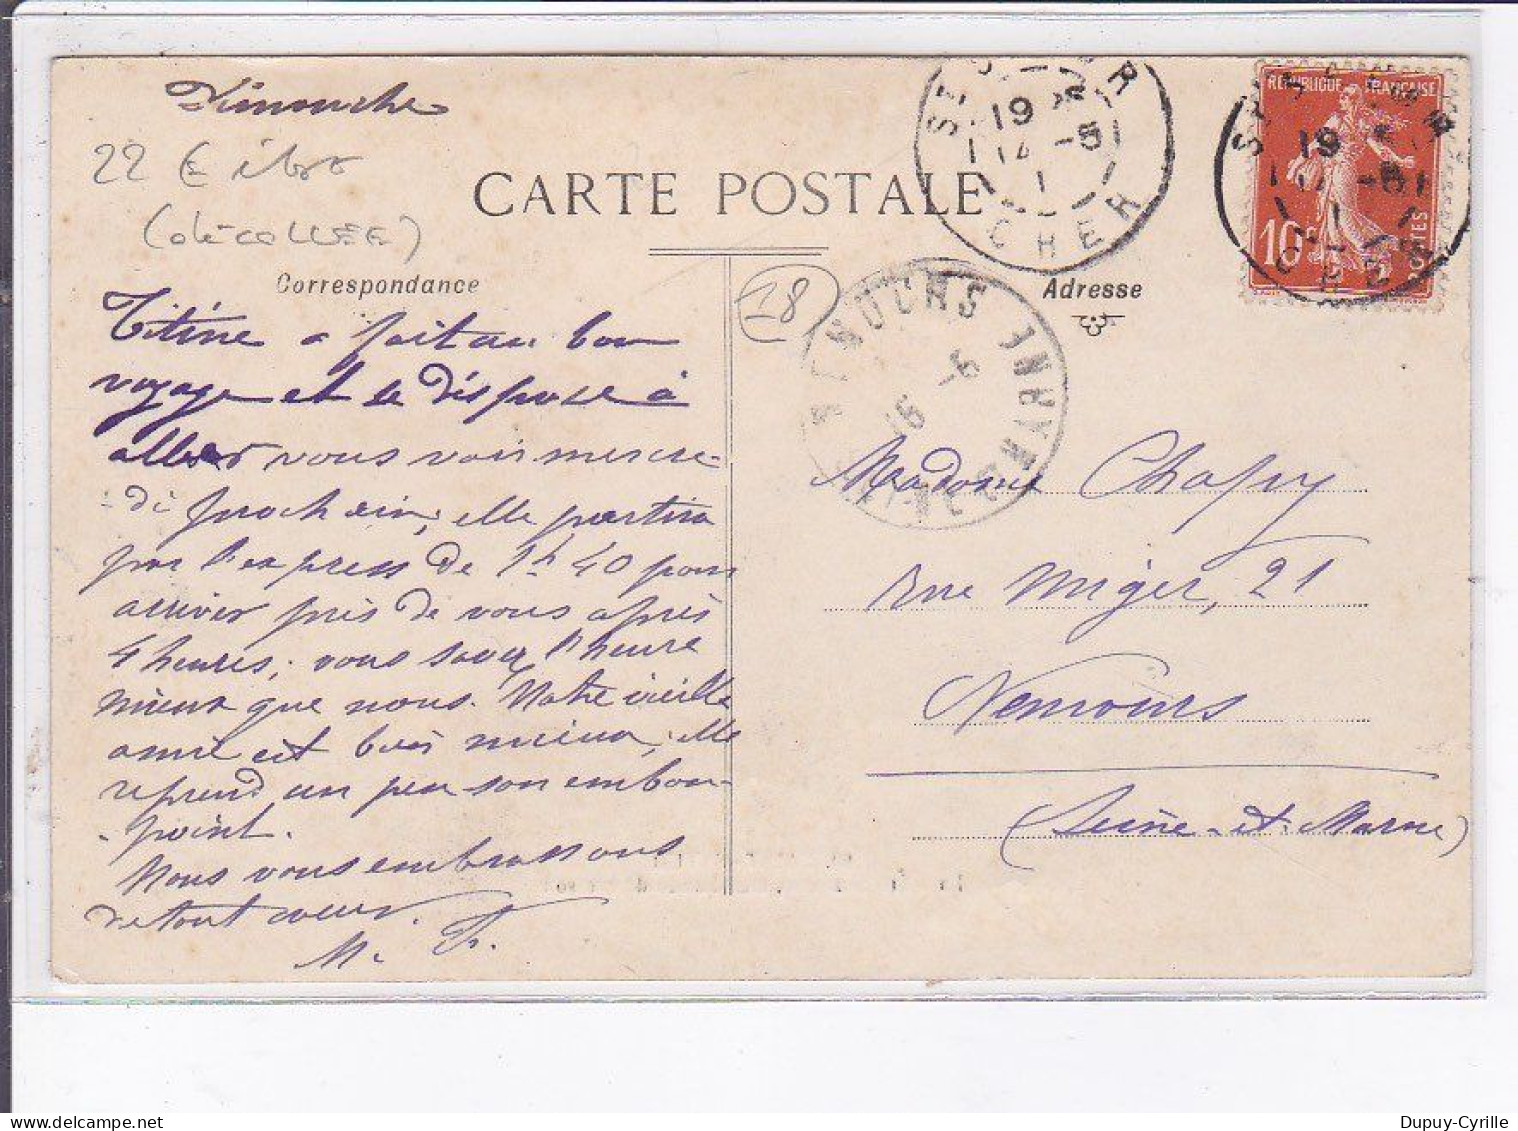 Dimanche
22 €
(décollée)
CARTE POSTALE
Correspondance
Adresse
18
Titine a fait un bon
voyage et se dispose à
aller vous voir mercre-
di prochain; elle partira
par l'express de 1h40 pour
arriver près de vous après
4 heures; vous savez l'heure
mieux que nous. Notre vieille
amie est bien mieux; elle
reprend un peu son embon-
point.
Nous vous embrassons
de tout cœur.
M. F.
Madame Chapuy
rue Miger, 21
Nemours
(Seine-et-Marne)
19
14 -5
CHER
NEMOURS
SEINE ET MARNE
16 -6
REPUBLIQUE FRANÇAISE
10c
POSTES
www.delcampe.net
Dupuy-Cyrille